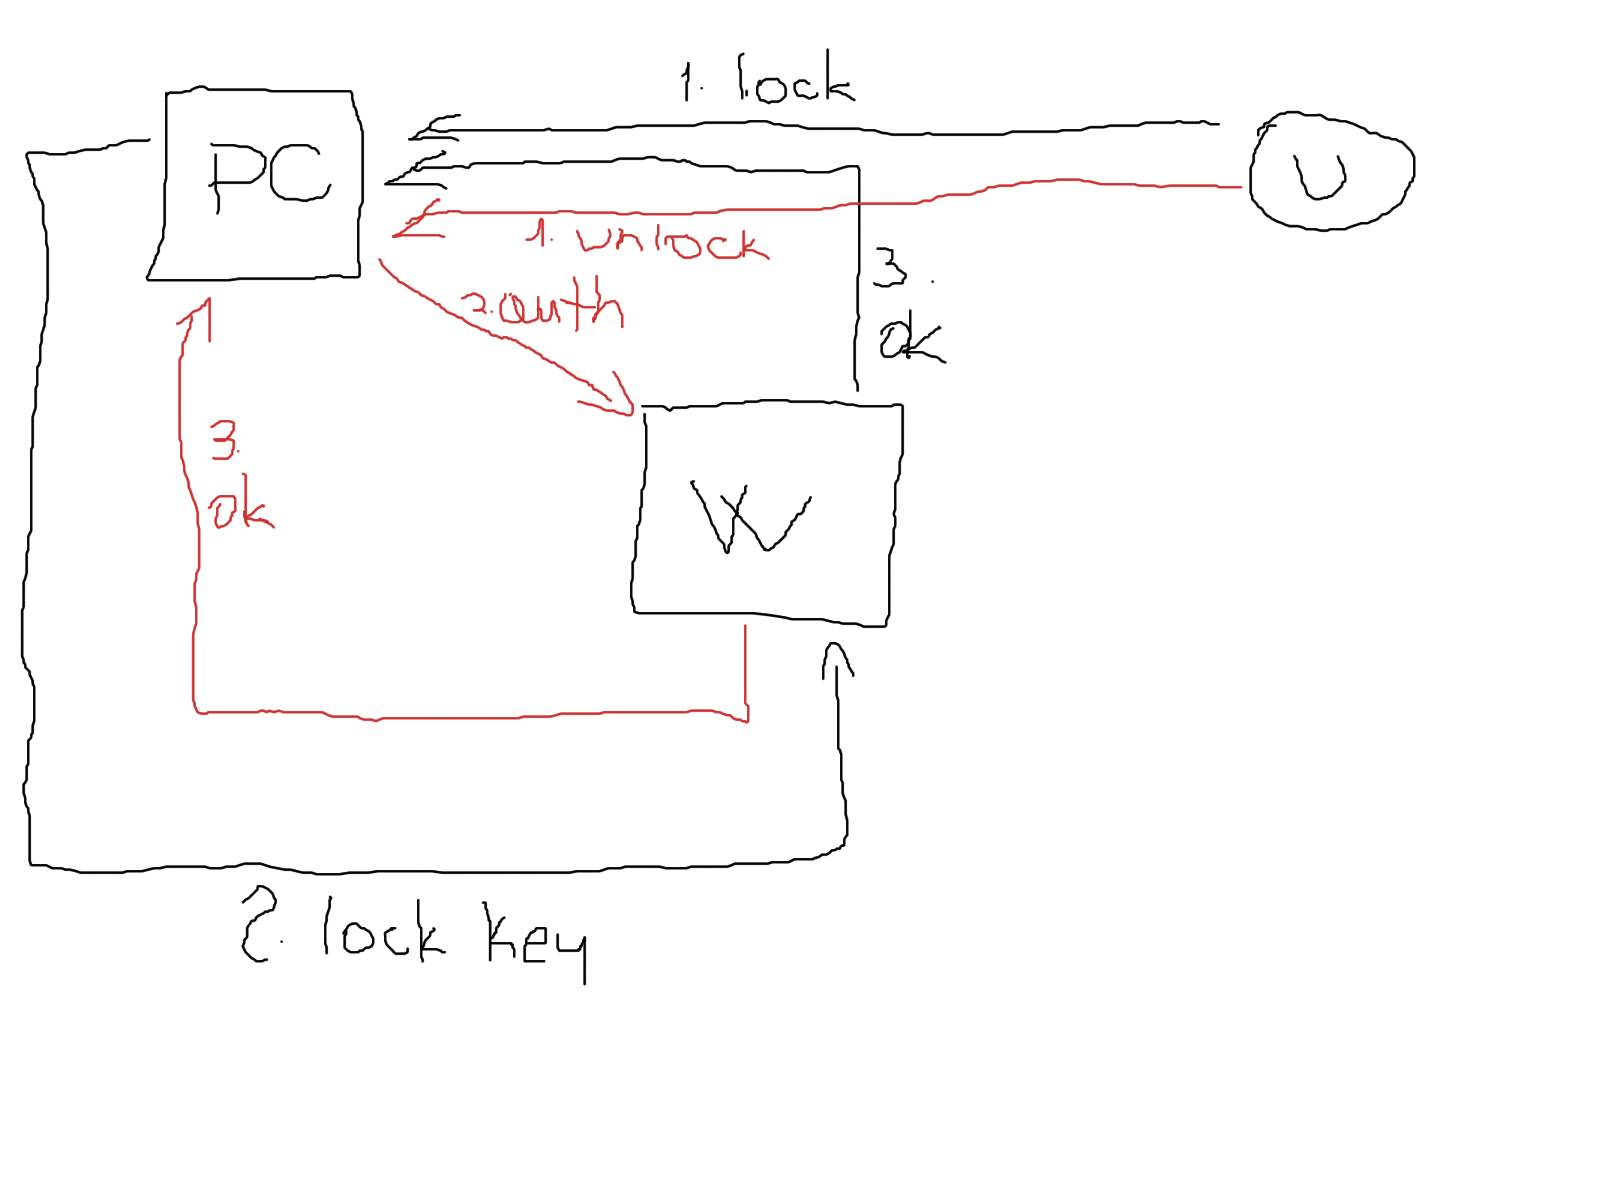 1. lock
PC
U
1. unlock
2. auth
3.
ok
W
3.
ok
2. lock key